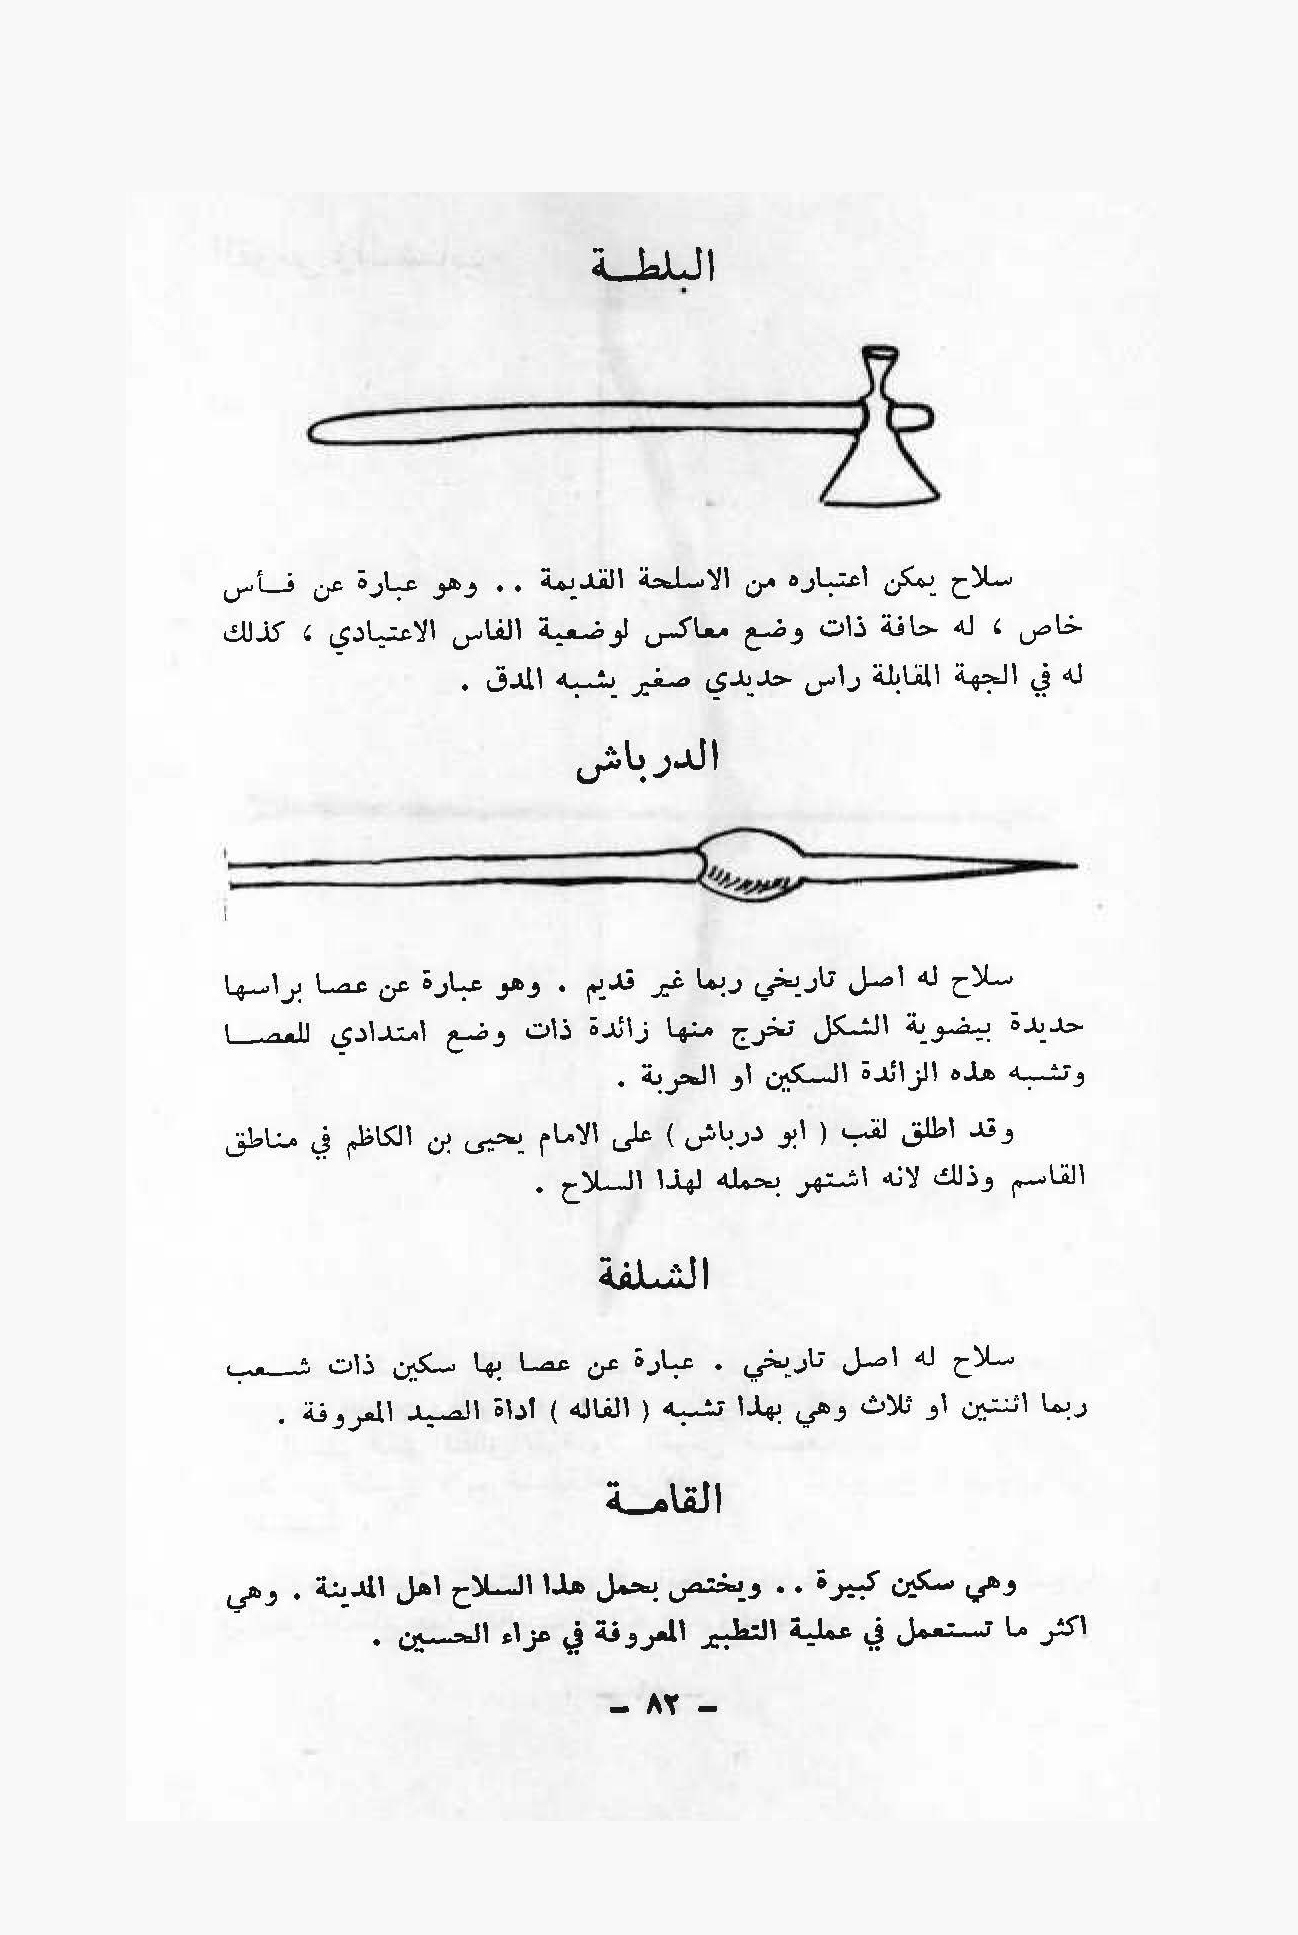 البلطـــة
سلاح يمكن اعتباره من الاسلحة القديمة . . وهو عبارة عن فــأس
خاص ، له حافة ذات وضع معاكس لوضعية الفاس الاعتيادي ، كذلك
له في الجهة المقابلة راس حديدي صغير يشبه المدق .
الدرباش
سلاح له اصل تاريخي ربما غير قديم . وهو عبارة عن عصا براسها
حديدة بيضوية الشكل تخرج منها زائدة ذات وضع امتدادي للعصـــا
وتشبه هذه الزائدة السكين او الحربة .
وقد اطلق لقب ( ابو درباش ) على الامام يحيى بن الكاظم في مناطق
القاسم وذلك لانه اشتهر بحمله لهذا السلاح .
الشلفة
سلاح له اصل تاريخي . عبارة عن عصا بها سكين ذات شـــعب
ربما اثنتين او ثلاث وهي بهذا تشبه ( الفاله ) أداة الصيد المعروفة .
القامـــة
وهي سكين كبيرة . . ويختص بحمل هذا السلاح اهل المدينة . وهي
اكثر ما تستعمل في عملية التطبير المعروفة في عزاء الحسين .
– ٨٢ –